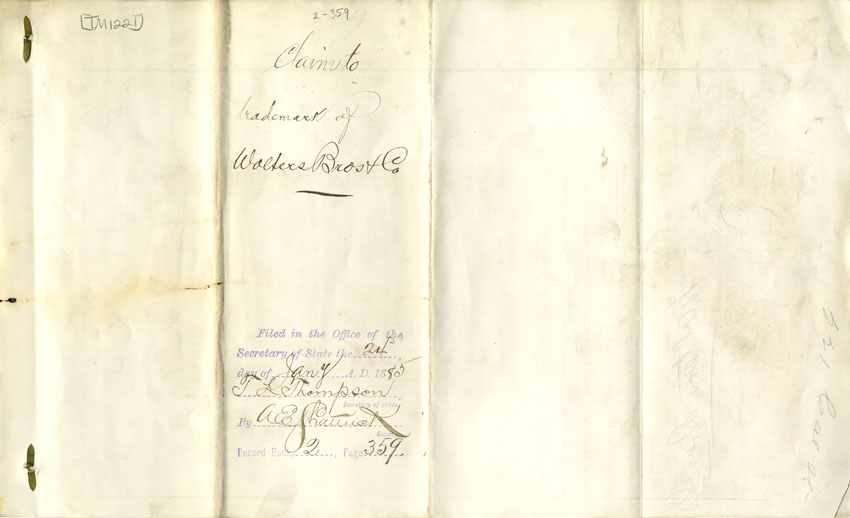 [TM1221]
2-359
Claim to
trademark of
Wolters Bros & Co
Filed in the Office of the
Secretary of State the 24th,
day of Jany A. D. 1885
T L Thompson
Secretary of State
By A E Shattuck
Deputy
Record Book 2, Page 359.